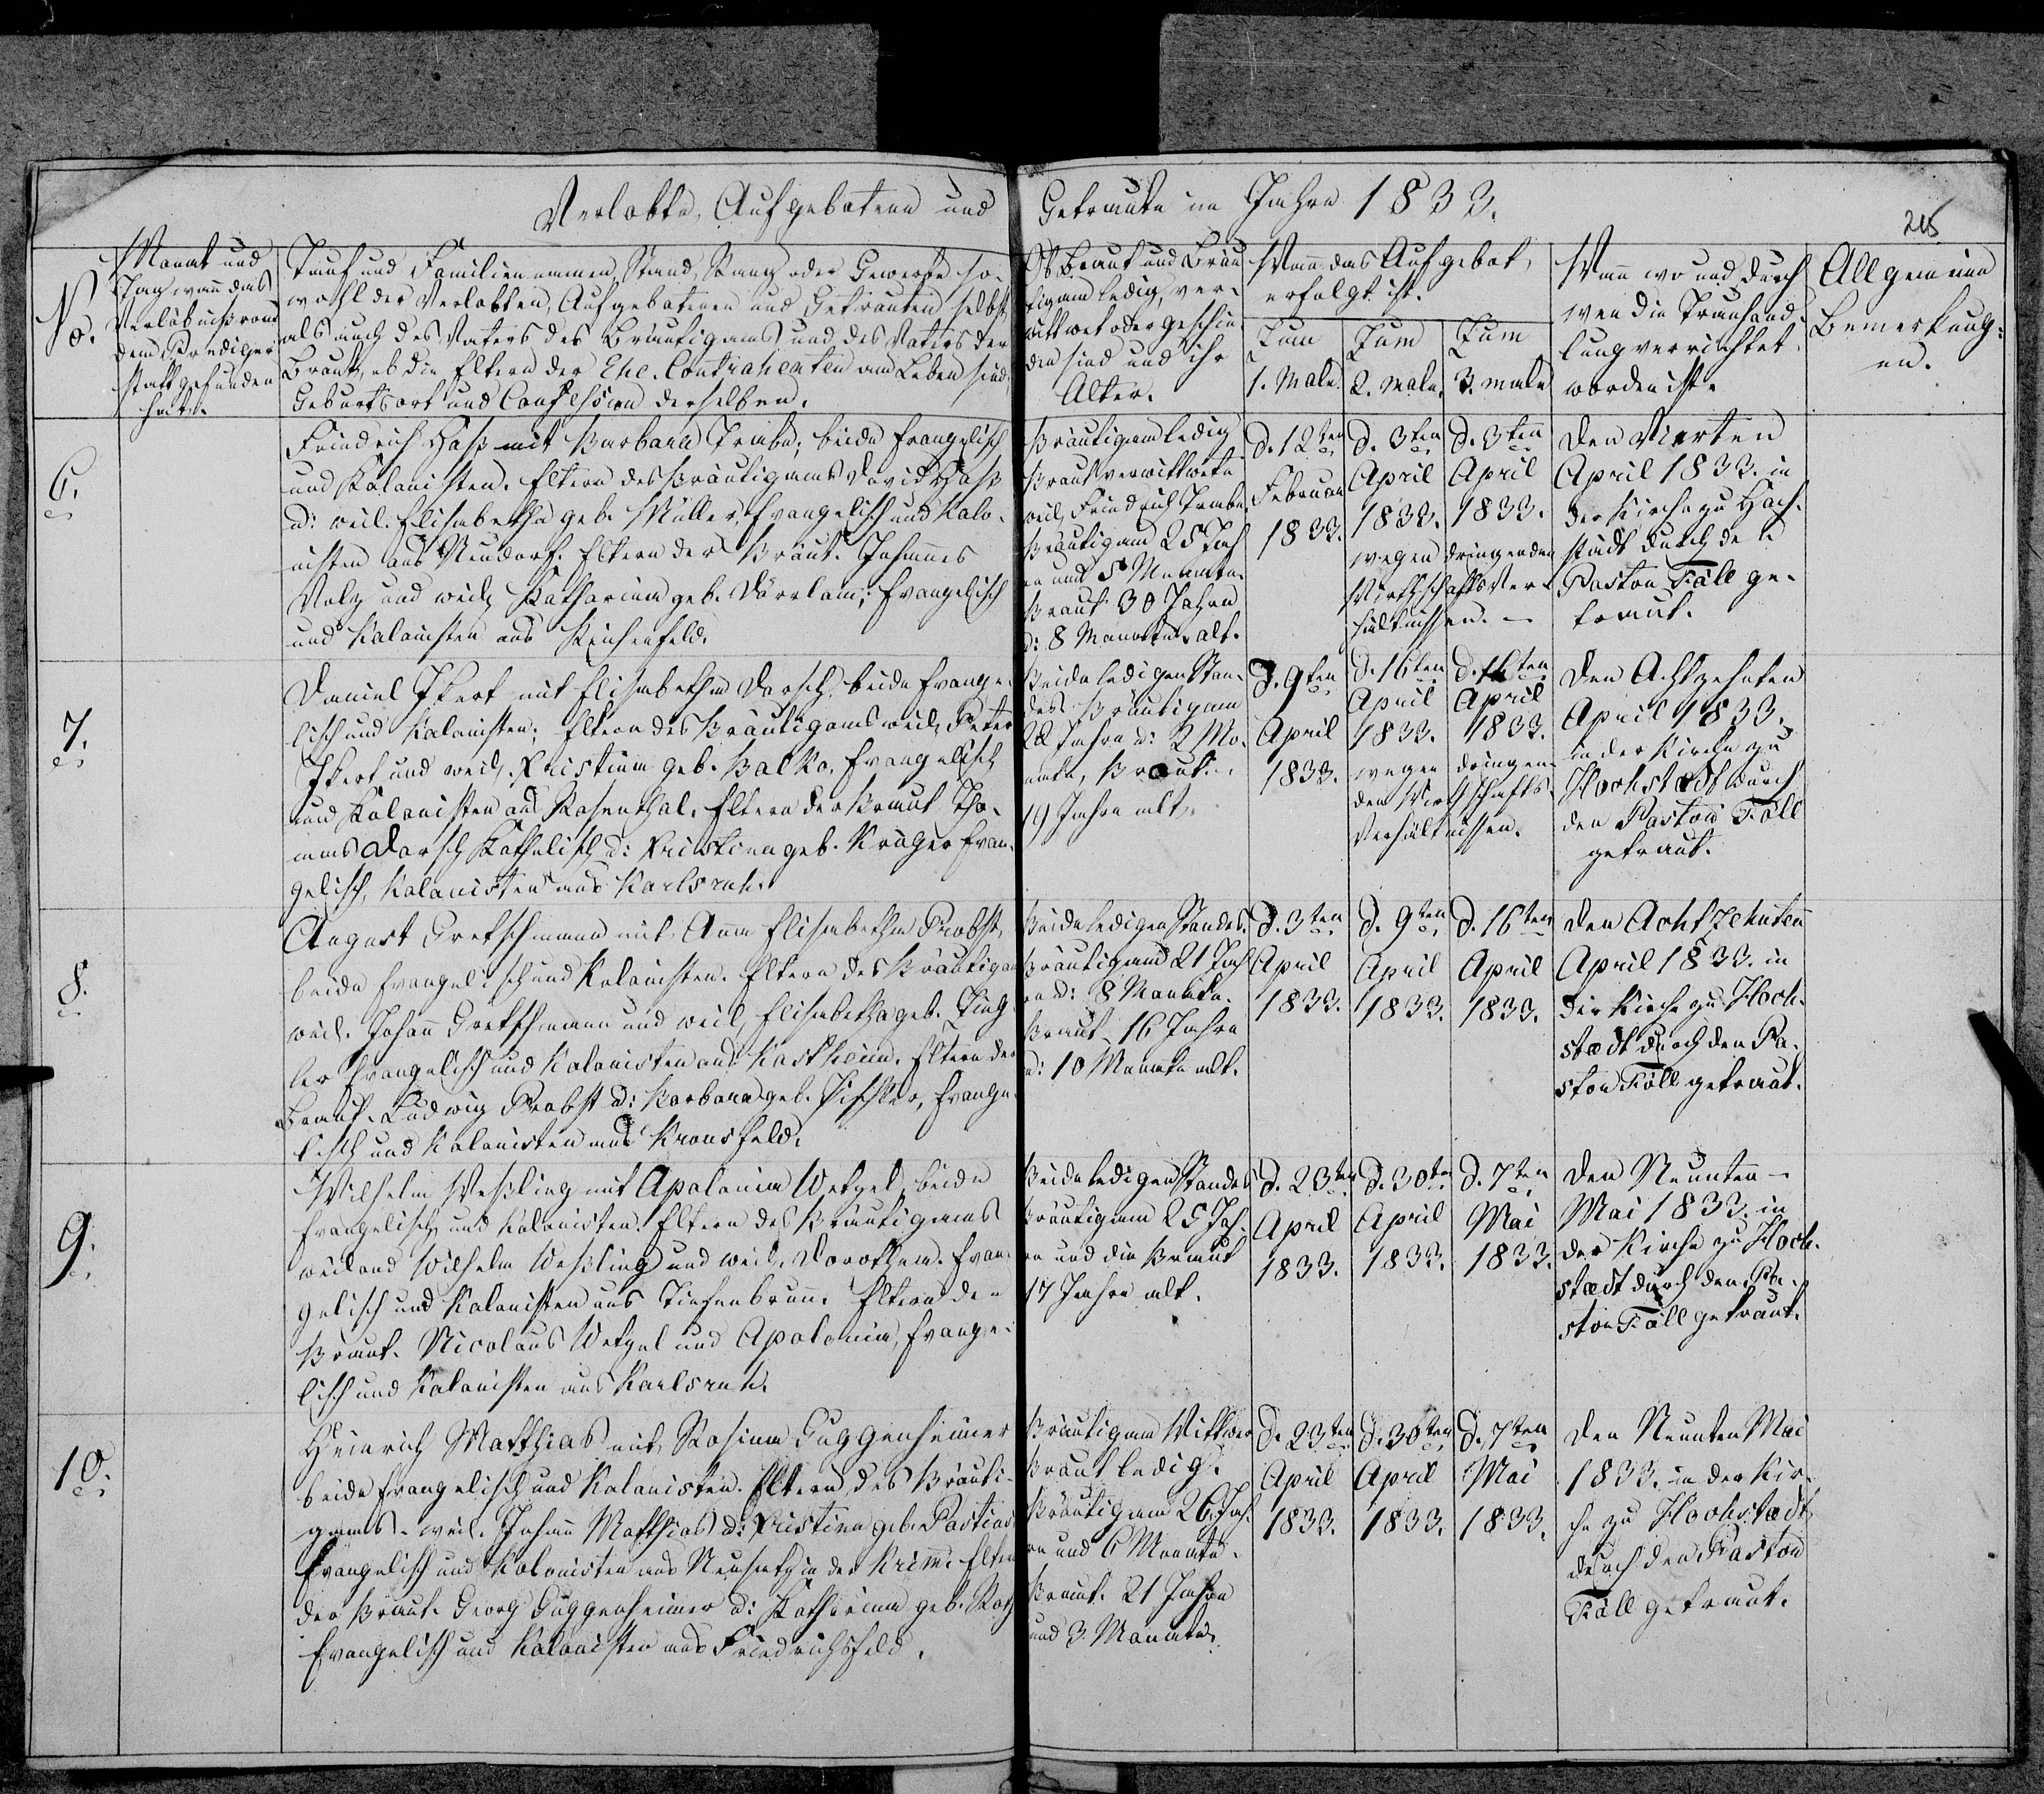 Verlobte, Aufgebotene und Getraute im Jahre 1833.
215
No.
Monat und
Tag wann das
Verlöbniß vor
dem Prediger
statt gefunden
hat.
Tauf und Familiennamen, Stand, Rang oder Gewerbe so-
wohl der Verlobten, Aufgebotenen und Getrauten selbst,
als auch des Vaters des Bräutigams und des Vaters der
Braut, ob die Eltern der Ehe-Contrahenten am Leben sind,
Geburtsort und Confession derselben.
Ob Braut und Bräu
tigam ledig, ver-
wittwet oder geschie
den sind und ihr
Alter.
Wann das Aufgebot
erfolgt ist.
Zum
1. Male.
Zum
2. Male.
Zum
3. male
Wann wo und durch
wen die Trauhand-
lung verrichtet
worden ist.
Allgemeine
Bemerkung-
en.
6.
Friedrich Haß mit Barbara; beide Evangelisch
und Kolonisten. Eltern des Bräutigams David Haß
u: weil. Elisabetha geb. Müller, Evangelisch und Kolo-
nisten aus Neudorf. Eltern der Braut. Johannes
Volz und weil. Katharina geb.; Evangelisch
und Kolonisten aus Reichenfeld.
Bräutigam ledig
Braut verwittwete
weil. Friedrich
Bräutigam 25 Jah
re und 5 Monate.
Braut 30 Jahre
u: 8 Monate alt.
d. 12ten
Februar
1833.
d. 3ten
April
1833.
d. 3ten
April
1833.
wegen dringenden
Wirthschafts Ver-
hältnissen. -
Den Vierten
April 1833. in
der Kirche zu Hoch-
städt durch de n
Pastor Föll ge-
traut.
7.
Daniel Ikert mit Elisabetha Dorsch, beide Evange-
lisch und Kolonisten; Eltern des Bräutigams weil. Peter
Ikert und weil. Kristina geb. Balko, Evangelisch
und Kolonisten aus Rosenthal. Eltern der Braut Tho-
mas Dorsch Katholisch u: Kristina geb. Krüger Evan-
gelisch, Kolonisten aus Karlsruh.
Beide ledigen Stan-
des Bräutigam
22 Jahre u: 2 Mo-
nate, Braut
19 Jahre alt.
d. 9ten
April
1833.
d. 16ten
April
1833.
d. 16ten
April
1833.
wegen dringen-
den Wirthschafts
Verhältnissen.
Den Achtzehnten
April 1833.
in der Kirche zu
Hochstædt durch
den Pastor Föll
getraut.
8.
August Gretschmann mit Anna Elisabetha Probst,
beide Evangelisch und Kolonisten. Eltern des Bräutigam
weil. Johann Gretschmann und weil. Elisabetha geb. Zieg-
ler Evangelisch und Kolonisten aus Kostheim. Eltern der
Braut. Ludwig Probst u: Barbara geb. Fischler, Evange-
lisch und Kolonisten aus Kronsfeld.
Beide ledigen Standes.
Bräutigam 21 Jah
re u: 8 Monate.
Braut 16 Jahre
u: 10 Monate alt.
d. 3ten
April
1833.
d. 9ten
April
1833.
d. 16ten
April
1833.
Den Achtzehnten
April 1833. in
der Kirche zu Hoch-
stædt durch den Pa-
stor Föll getraut.
9.
Wilhelm Weßling mit Apolonia Wetzel, beide
Evangelisch und Kolonisten. Eltern des Bräutigams
weiland Wilhelm Weßling und weil. Dorothea. Evan-
gelisch und Kolonisten aus Tiefenbrunn. Eltern der
Braut. Nicolaus Wetzel und Apolonia, Evange-
lisch und Kolonisten aus Karlsruh.
Beide ledigen Standes
Bräutigam 25 Jah-
re und die Braut
17 Jahre alt.
d. 23ten
April
1833.
d. 30ten
April
1833.
d. 7ten
Mai
1833.
Den Neunten -
Mai 1833. in
der Kirche zu Hoch-
stædt durch den Pa-
stor Föll getraut.
10.
Heinrich Matthias mit Rosina Guggenheimer
beide Evangelisch und Kolonisten. Eltern des Bräuti-
gams. weil. Johann Matthias u: Kristina geb. Bastias
Evangelisch und Kolonisten aus Neusatz in der Krimm. Eltern
der Braut. Georg Guggenheimer u: Katharina geb. Roth
Evangelisch und Kolonisten aus Friedrichsfeld.
Bräutigam Wittwer
Braut ledig.
Bräutigam 26 Jah-
re und 6 Monate.
Braut. 21 Jahre
und 3. Monate.
d. 23ten
April
1833.
d. 30ten
April
1833.
d. 7ten
Mai
1833.
Den Neunten Mai
1833. in der Kir-
che zu Hochstædt
durch den Pastor
Föll getraut.